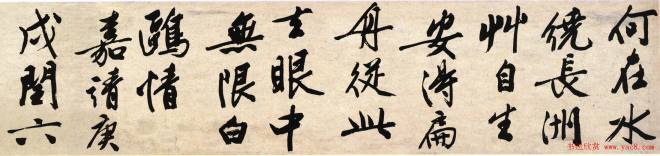 何在水
繞長洲
艸自生
安得扁
舟從此
去眼中
無限白
鷗情
嘉靖庚
戌閏六
书法欣赏
www.yac8.com